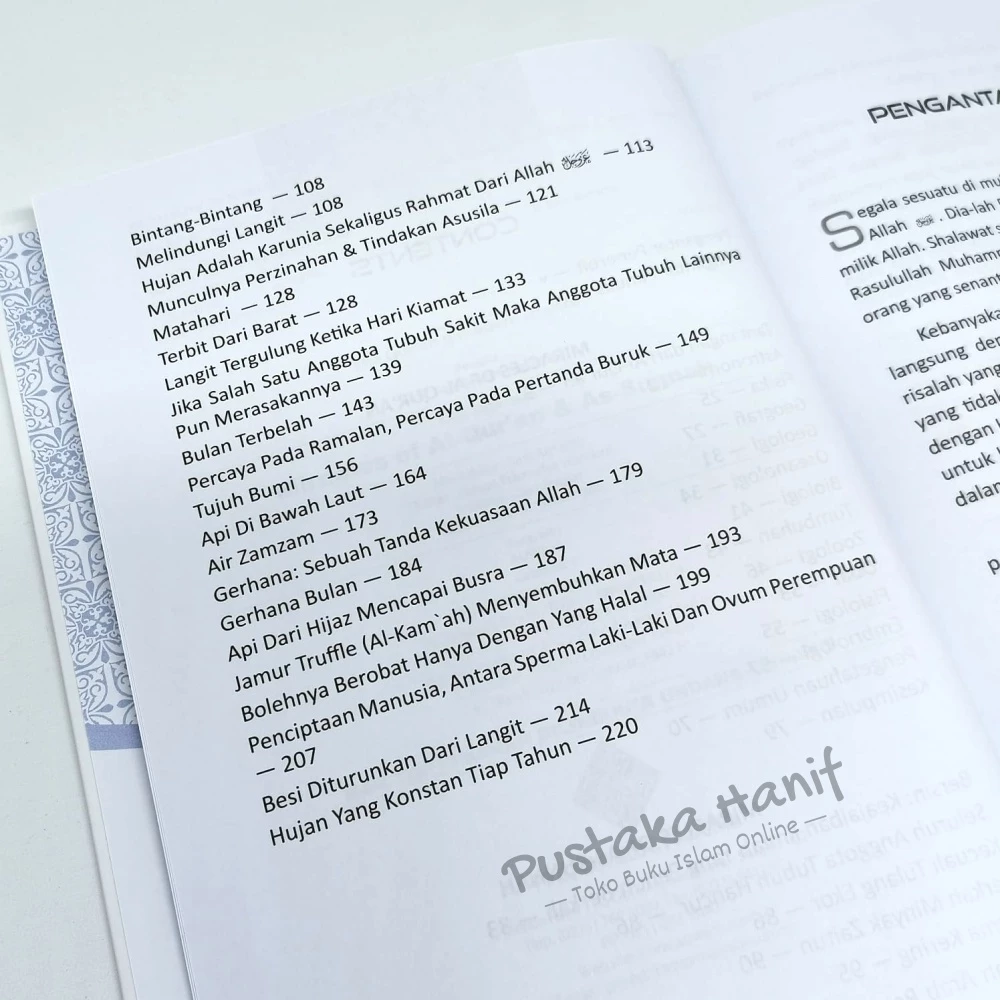 Bintang-Bintang — 108
Melindungi Langit — 108
Hujan Adalah Karunia Sekaligus Rahmat Dari Allah ﷻ — 113
Munculnya Perzinahan & Tindakan Asusila — 121
Matahari — 128
Terbit Dari Barat — 128
Langit Tergulung Ketika Hari Kiamat — 133
Jika Salah Satu Anggota Tubuh Sakit Maka Anggota Tubuh Lainnya
Pun Merasakannya — 139
Bulan Terbelah — 143
Percaya Pada Ramalan, Percaya Pada Pertanda Buruk — 149
Tujuh Bumi — 156
Api Di Bawah Laut — 164
Air Zamzam — 173
Gerhana: Sebuah Tanda Kekuasaan Allah — 179
Gerhana Bulan — 184
Api Dari Hijaz Mencapai Busra — 187
Jamur Truffle (Al-Kam`ah) Menyembuhkan Mata — 193
Bolehnya Berobat Hanya Dengan Yang Halal — 199
Penciptaan Manusia, Antara Sperma Laki-Laki Dan Ovum Perempuan
— 207
Besi Diturunkan Dari Langit — 214
Hujan Yang Konstan Tiap Tahun — 220
Pustaka Hanif
— Toko Buku Islam Online —
PENGANTA
Segala sesuatu di mu
Allah ﷻ. Dia-lah
milik Allah. Shalawat s
Rasulullah Muhamm
orang yang senant
Kebanyaka
langsung der
risalah yang
yang tidak
dengan
untuk
dalam